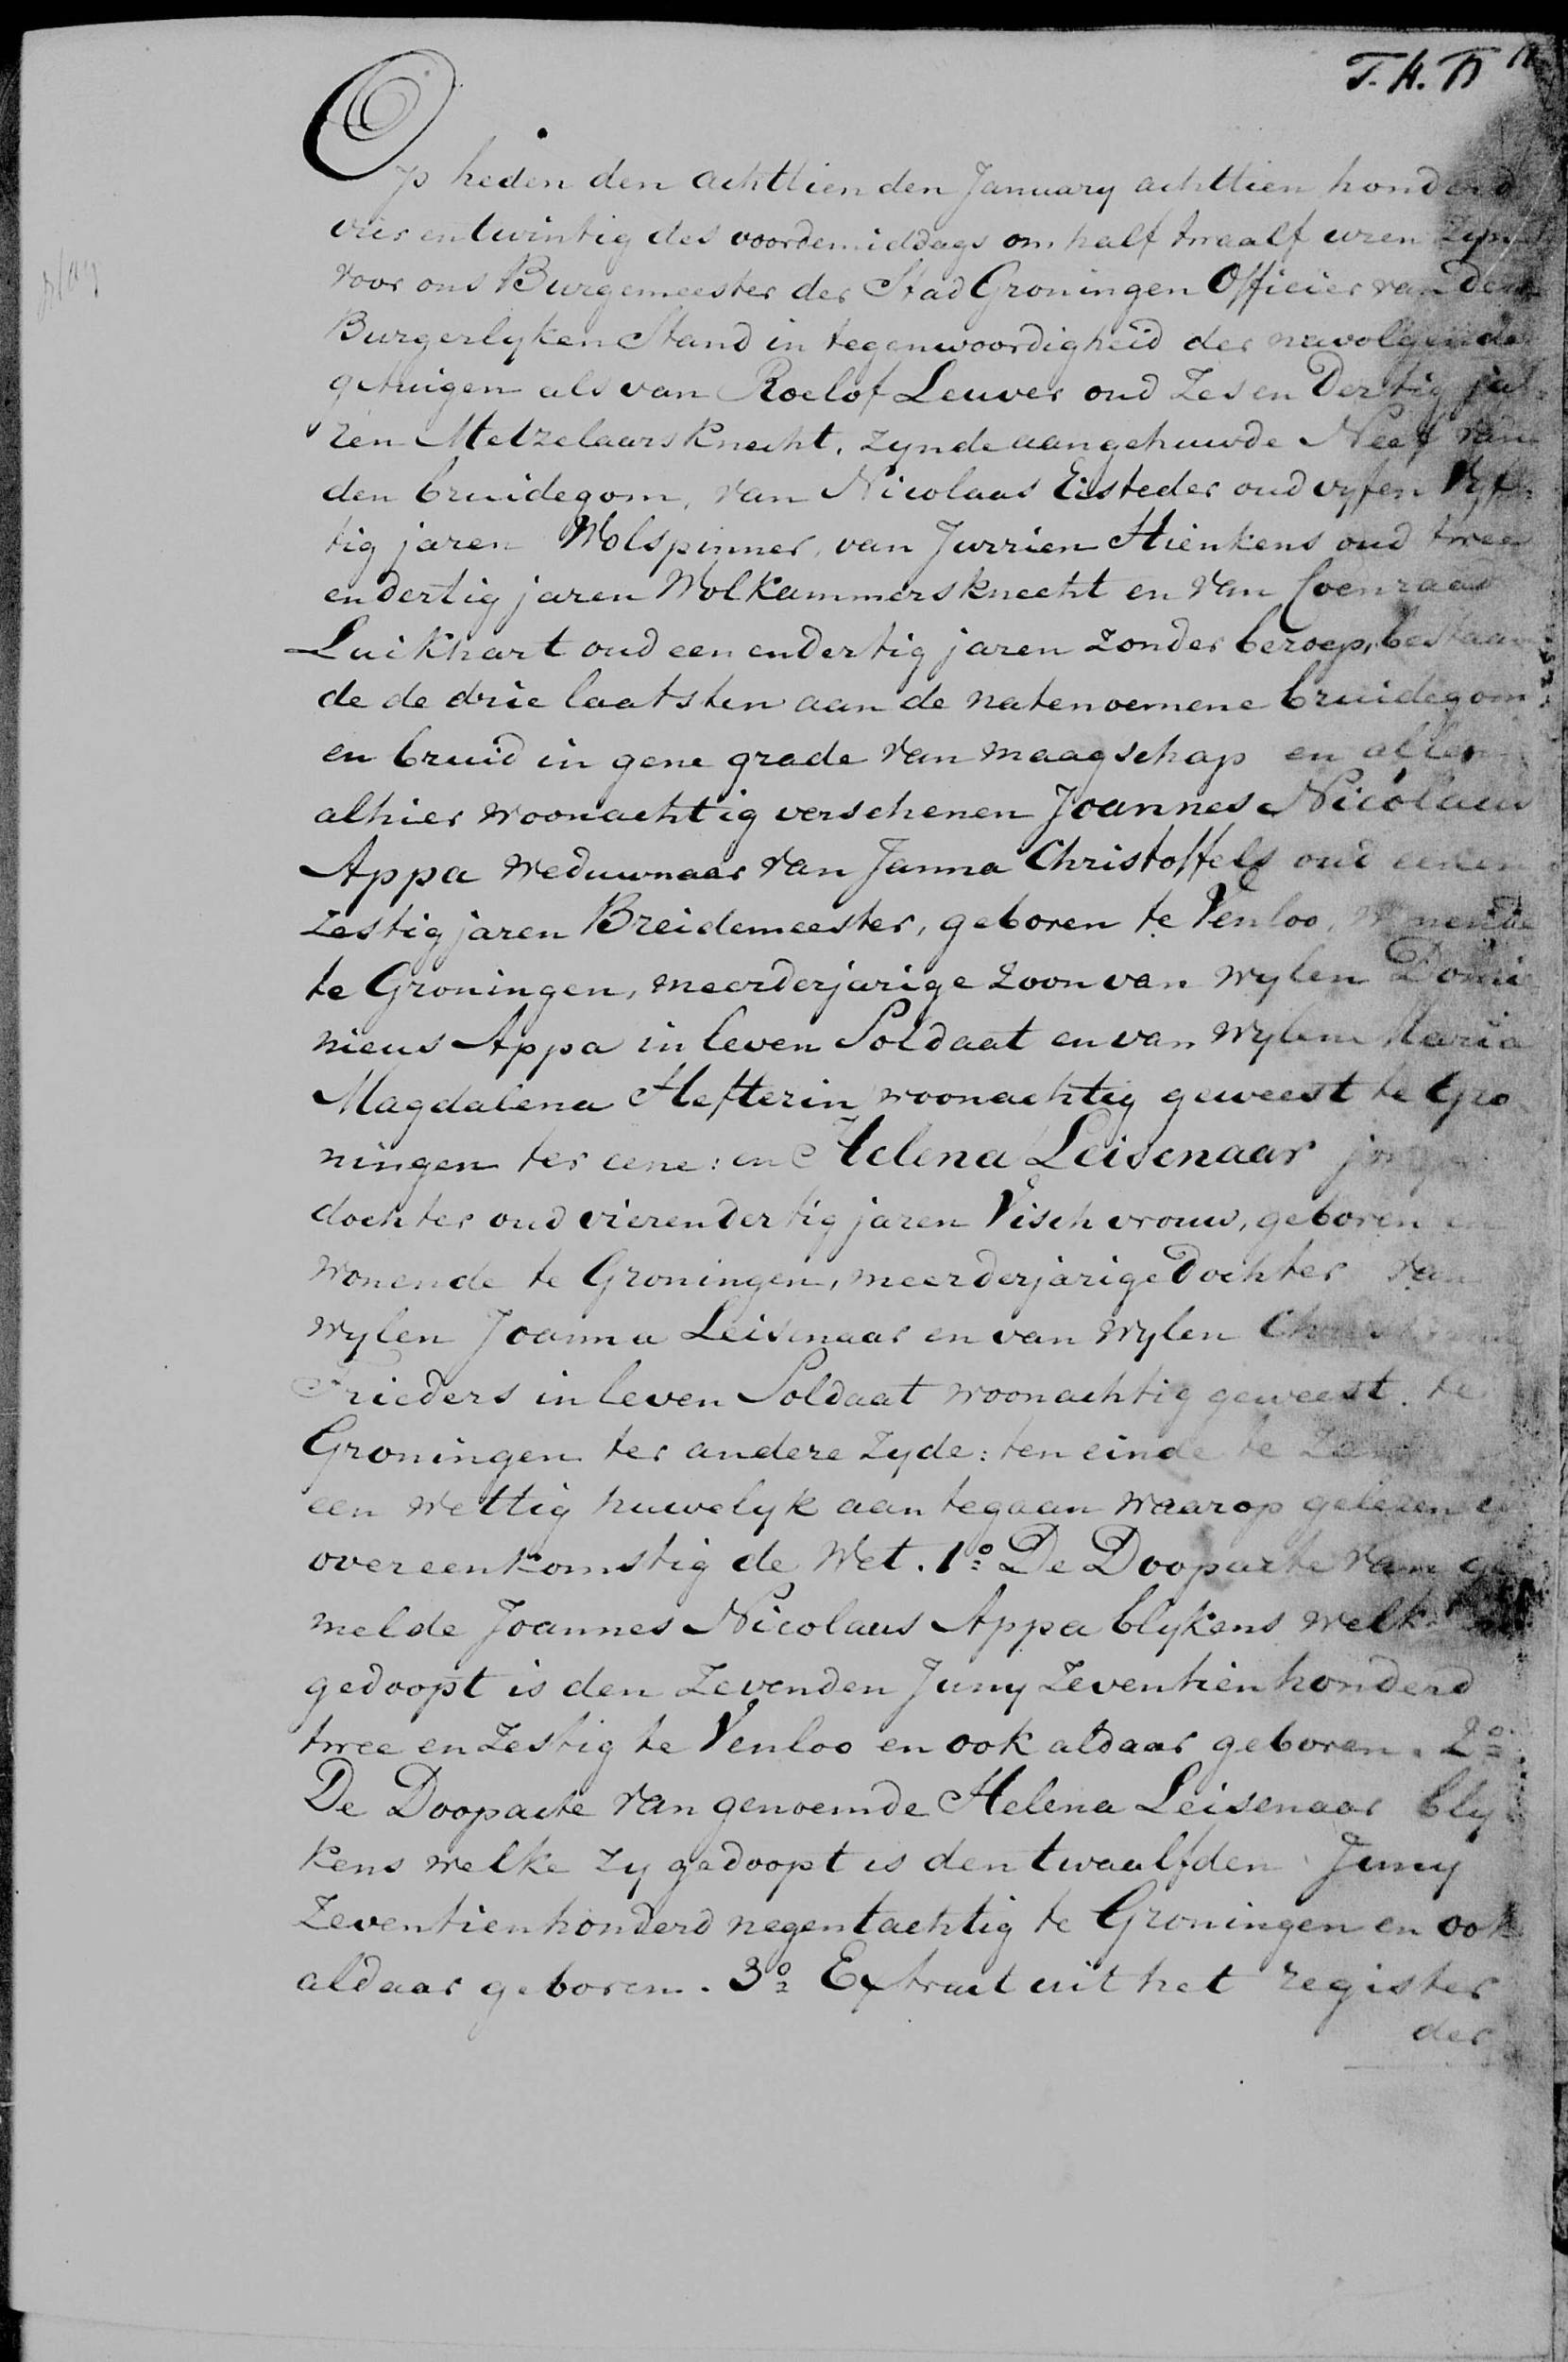 T. A. A
Op heden den achttienden January achttien honderd
vier en twintig des voordemiddags om half twaalf uren zyn
voor ons Burgemeester der Stad Groningen Officier van den
Burgerlyken Stand in tegenwoordigheid der navolgende
getuigen als van Roelof Leuver oud Zes en Dertig ja-
ren Metzelaars Knecht, zynde aangehuwde Neef van
den bruidegom, van Nicolaas Eisteder oud vyf en Vyf-
tig jaren Wolspinner, van Jurrien Hienkens oud twee
en dertig jaren Wolkammersknecht en van Coenraad
Luikhart oud een en dertig jaren zonder beroep, bestaan
de de drie laatsten aan de natenoemene bruidegom
en bruid in gene grade van maagschap en allen
alhier woonachtig verschenen Joannes Nicolaus
Appa weduwnaar van Janna Christoffels oud een en
zestig jaren Breidemeester, geboren te Venloo, wonende
te Groningen, meerderjarige zoon van wylen Domi
nicus Appa in leven Soldaat en van wylen Maria
Magdalena Hefterin woonachtig geweest te Gro
ningen ter eene: en Helena Leisenaar jonge
dochter oud vierendertig jaren Vischvrouw, geboren en
wonende te Groningen, meerderjarige Dochter van
wylen Joanna Leisenaar en van wylen
Frieders in leven Soldaat woonachtig geweest te
Groningen ter andere zyde: ten einde te
een wettig huwelyk aan tegaan waarop gelezen is
overeenkomstig de Wet. 1o De Doopacte van ge
melde Joannes Nicolaus Appa blykens welk
gedoopt is den zevenden Juny Zeventien honderd
twee en zestig te Venloo en ook aldaar geboren. 2o
De Doopacte van genoemde Helena Leisenaar bly
kens welke zy gedoopt is den twaalfden Juny
Zeventienhonderd negentachtig te Groningen en ook
aldaar geboren. 3o Extract uit het register
der